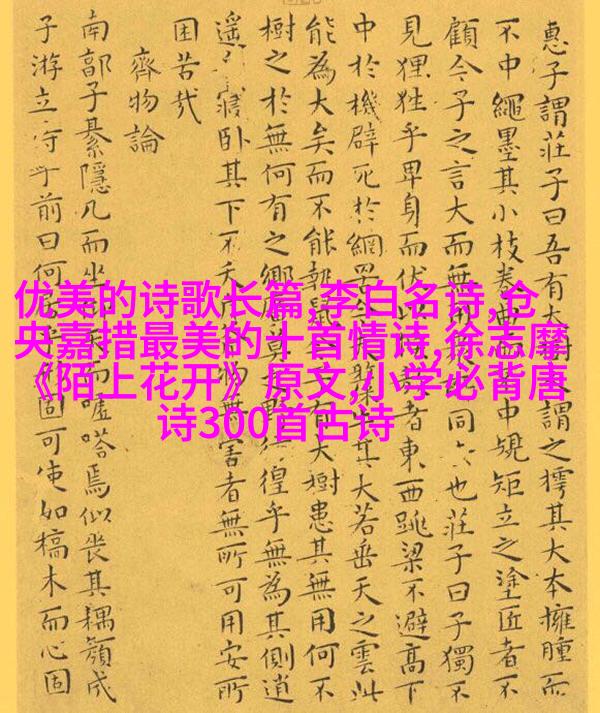 优美的诗歌长篇,李白名诗,仓
央嘉措最美的十首情诗,徐志摩
《陌上花开》原文,小学必背唐
诗300首古诗
惠子謂莊子曰吾有大謂之樗其大本擁腫而
不中繩墨其小枝卷曲中規矩立之塗匠者不
顧今子之言大而無同也莊子曰子獨不
見狸狌乎卑身而伏者東西跳梁不避高下
中於機辟死於網罟今牛其大若垂天之雲此
能為大矣而不能執鼠大樹患其無用何不
樹之於無何有之鄉莫之野徨乎無為其側逍
遙寢臥其下不夭物無害者無所可用安所
困苦哉
齊物論
南郭子綦隱几而坐天而噓嗒焉似喪其耦顏成
子游立侍乎前曰何固可使如槁木而心固